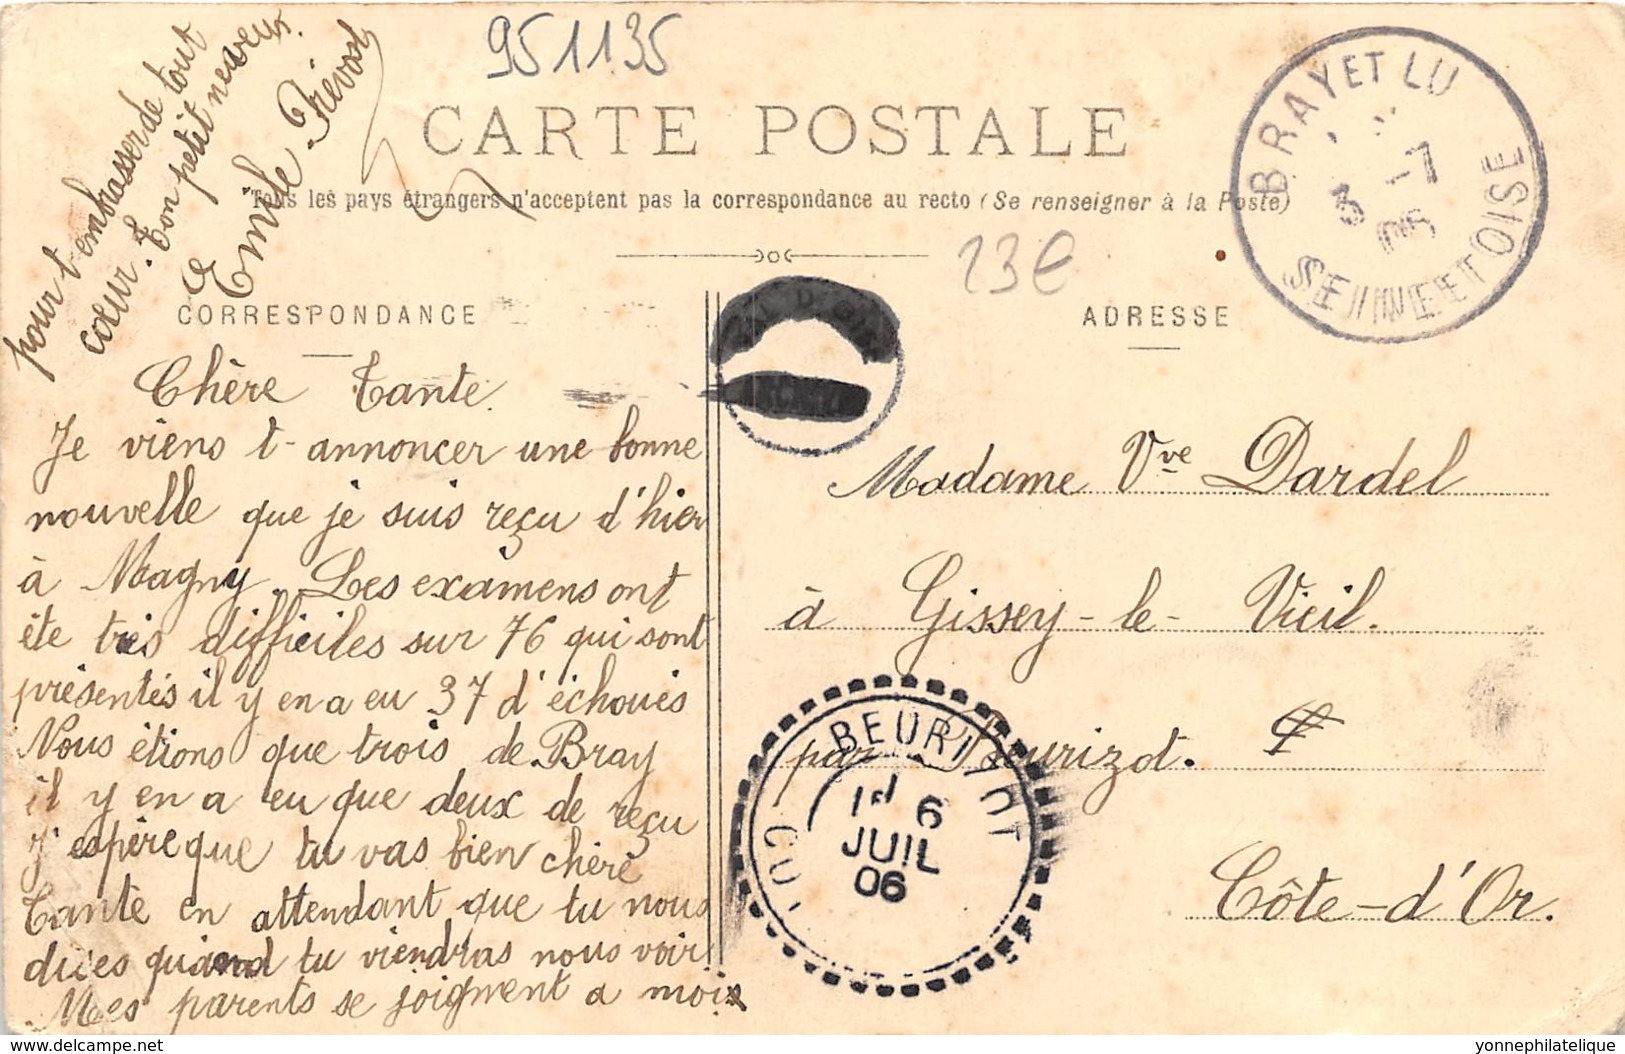 951135
CARTE POSTALE
Tous les pays étrangers n'acceptent pas la correspondance au recto (Se renseigner à la Poste)
23€
CORRESPONDANCE
ADRESSE
Chère Tante
Je viens t-annoncer une bonne
nouvelle que je suis reçu d'hier
à Magny. Les examens ont
éte très difficiles sur 76 qui sont
présentés il y en a eu 37 d'échoués
Nous étions que trois de Bray
il y en a eu que deux de reçu
J'espère que tu vas bien chère
Tante en attendant que tu nous
dises quand tu viendras nous voir
Mes parents se joignent a moi
pour t'embrasser de tout
cœur. Ton petit neveux.
Emile Prévost
Madame Vve Dardel
à Gissey-le-Vieil.
par Beurizot.
Côte-d'Or.
BRAY ET LU
5 -7
06
SEINE ET OISE
BEURIZOT
6
JUIL
06
delcampe.net
yonnephilatelique